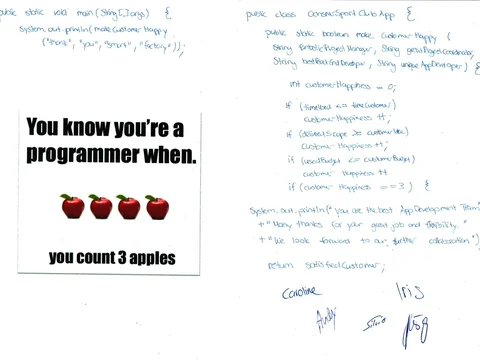 public static void main (String[] args) {
System.out.println(make Customer Happy
("thank", "you", "smart", "factory"));
You know you're a
programmer when.
you count 3 apples
public class CanoeSportClubApp {
public static boolean make Customer Happy (
String fantasticProjectManager, String greatProjectCoordinator,
String bestBackEndDeveloper, String uniqueAppDeveloper) {
int customerHappiness = 0;
if (timeUsed <= timeCustomer)
customerHappiness ++;
if (deliveredScope >= customer
customer Happiness ++;
if (usedBudget <= customerBudget)
customer Happiness ++
if (customer Happiness == 3) {
System.out.println("you are the best App Development Team"
+ "Many thanks for your great job and flexibility."
+ "We look forward to our further collaboration")
return satisfiedCustomer;
Caroline
Iris
Andy
Silvio